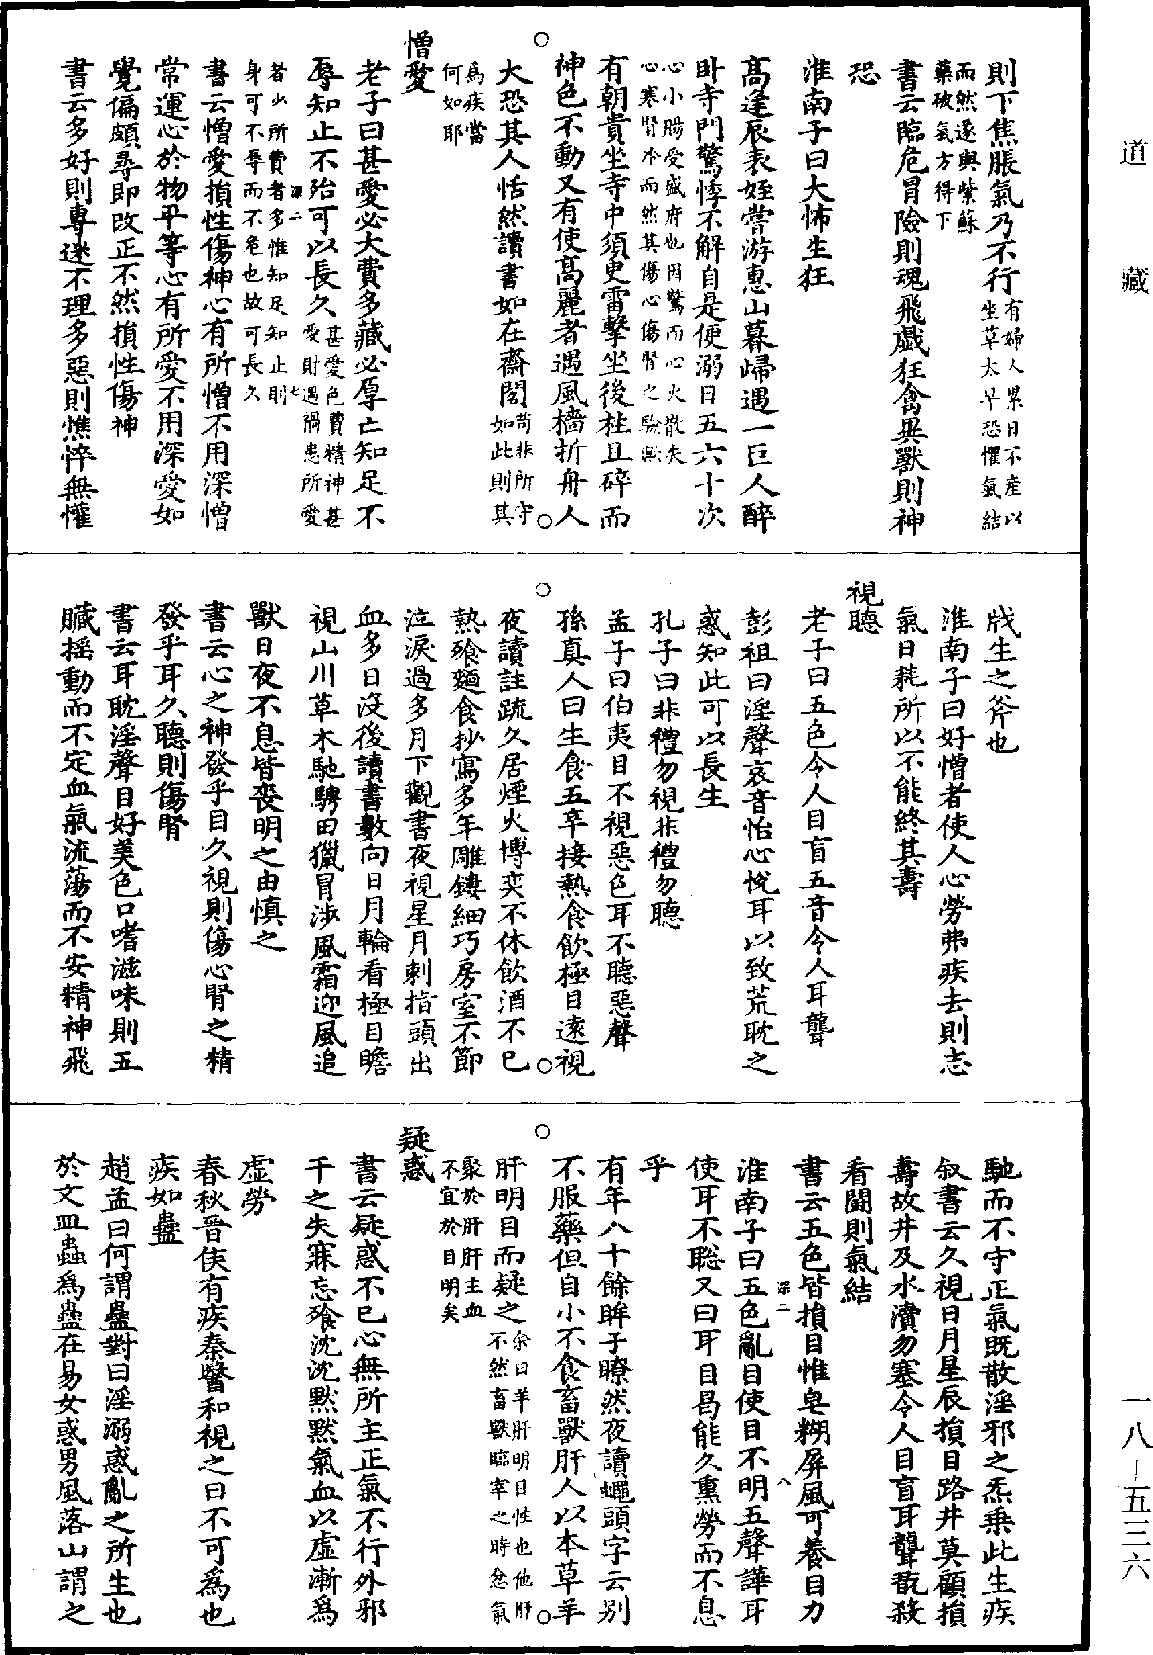 則下焦脹氣乃不行有婦人累日不産以
坐草太早恐懼氣結
而然遂與紫蘇
藥破氣方得下
書云臨危冒險則魂飛戲狂禽異獸則神
恐
淮南子曰大怖生狂
高逢辰表姪嘗游惠山暮歸遇一巨人醉
卧寺門驚悸不解自是便溺日五六十次
心小腸受盛府也因驚而心火散失
心寒腎冷而然其傷心傷腎之驗歟
有朝貴坐寺中須臾雷擊坐後柱且碎而
神色不動又有使高麗者遇風檣折舟人
大恐其人恬然讀書如在齋閤苟非所守
如此則其
為疾當
何如耶
憎愛
老子曰甚愛必大費多藏必厚亡知足不
辱知止不殆可以長久甚愛色費精神甚
愛財遇禍患所愛
者少所費者多惟知足知止則
身可不辱而不危也故可長久
深二
七
書云憎愛損性傷神心有所憎不用深憎
常運心於物平等心有所愛不用深愛如
覺偏頗尋即改正不然損性傷神
書云多好則專迷不理多惡則憔悴無懽
戕生之斧也
淮南子曰好憎者使人心勞弗疾去則志
氣日耗所以不能終其壽
視聽
老子曰五色令人目盲五音令人耳聾
彭祖曰淫聲哀音怡心悅耳以致荒耽之
惑知此可以長生
孔子曰非禮勿視非禮勿聽
孟子曰伯夷目不視惡色耳不聽惡聲
孫真人曰生食五辛接熱食飲極目遠視
夜讀註疏久居煙火博奕不休飲酒不已
熱飱麵食抄寫多年雕鏤細巧房室不節
泣淚過多月下觀書夜視星月刺指頭出
血多日沒後讀書數向日月輪看極目瞻
視山川草木馳騁田獵冒涉風霜迎風追
獸日夜不息皆喪明之由慎之
書云心之神發乎目久視則傷心腎之精
發乎耳久聽則傷腎
書云耳耽淫聲目好美色口嗜滋味則五
臟摇動而不定血氣流蕩而不安精神飛
馳而不守正氣既散淫邪之炁乗此生疾
叙書云久視日月星辰損目路井莫顧損
壽故井及水瀆勿塞令人目盲耳聾翫殺
看鬭則氣結
書云五色皆損目惟皂糊屏風可養目力
深二
八
淮南子曰五色亂目使目不明五聲譁耳
使耳不聡又曰耳目曷能久熏勞而不息
乎
有年八十餘眸子瞭然夜讀蠅頭字云别
不服藥但自小不食畜獸肝人以本草羊
肝明目而疑之余曰羊肝明目性也他肝
不然畜獸臨宰之時忿氣
聚於肝肝主血
不宜於目明矣
疑惑
書云疑惑不已心無所主正氣不行外邪
干之失寐忘飱沈沈默默氣血以虚漸為
虚勞
春秋晉侯有疾秦醫和視之曰不可為也
疾如蠱
趙孟曰何謂蠱對曰淫溺惑亂之所生也
於文皿蟲為蠱在易女惑男風落山謂之
道藏
一八-五三六